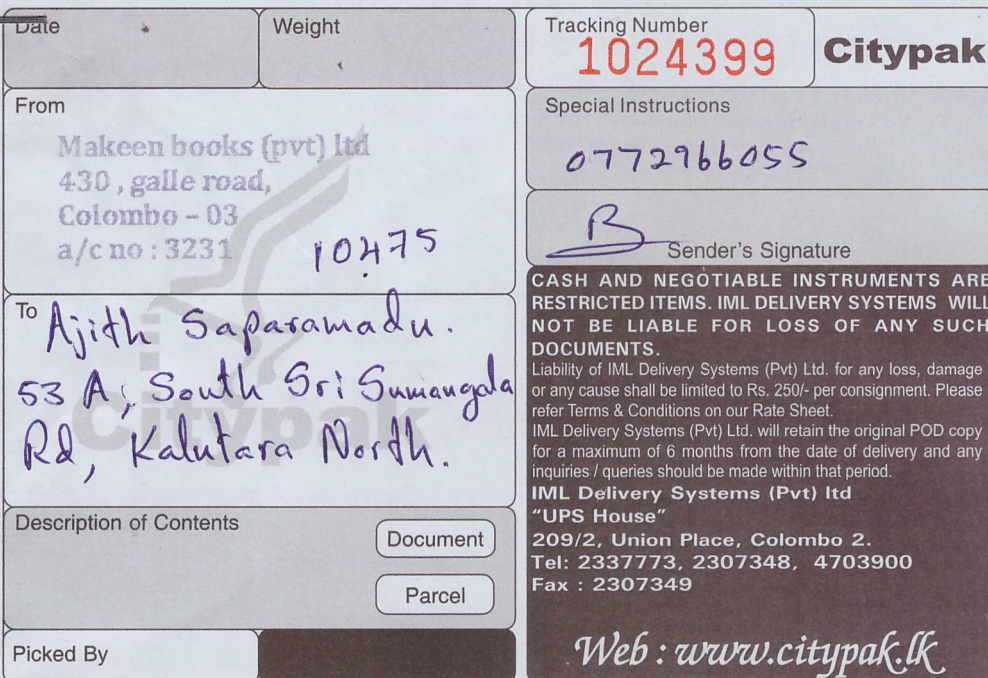 Date
Weight
From
Makeen books (pvt) ltd
430 , galle road,
Colombo – 03
a/c no : 3231
10475
To
Ajith Saparamadu.
53 A, South Sri Sumangala
Rd, Kalutara North.
Citypak
Description of Contents
Document
Parcel
Picked By
Tracking Number
1024399
Citypak
Special Instructions
0772966055
Sender's Signature
CASH AND NEGOTIABLE INSTRUMENTS ARE
RESTRICTED ITEMS. IML DELIVERY SYSTEMS WILL
NOT BE LIABLE FOR LOSS OF ANY SUCH
DOCUMENTS.
Liability of IML Delivery Systems (Pvt) Ltd. for any loss, damage
or any cause shall be limited to Rs. 250/- per consignment. Please
refer Terms & Conditions on our Rate Sheet.
IML Delivery Systems (Pvt) Ltd. will retain the original POD copy
for a maximum of 6 months from the date of delivery and any
inquiries / queries should be made within that period.
IML Delivery Systems (Pvt) ltd
"UPS House"
209/2, Union Place, Colombo 2.
Tel: 2337773, 2307348, 4703900
Fax : 2307349
Web : www.citypak.lk